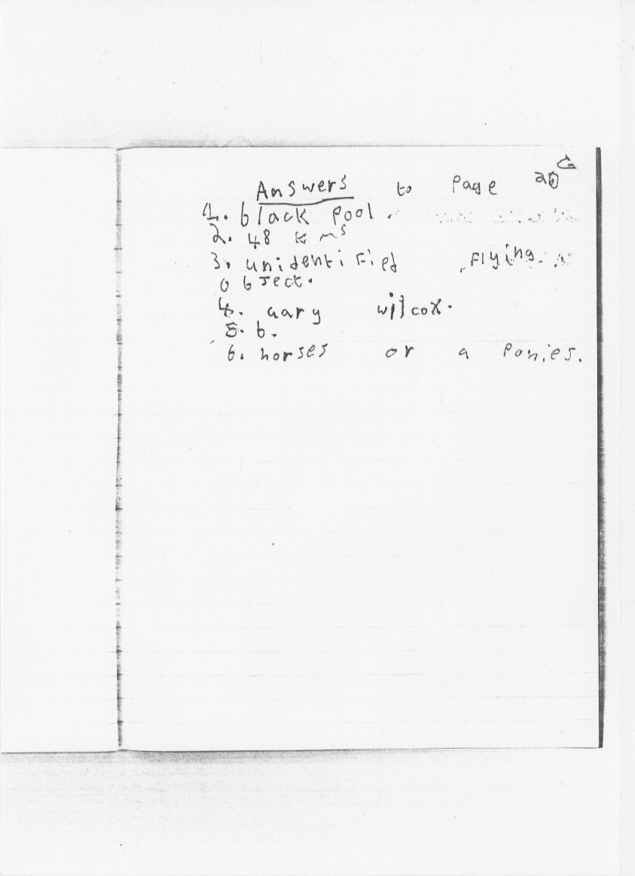 Answers to Page
1. black Pool.
2. 48 kms
3. unidentified flying
object.
4. Gary wilcox.
5. b.
6. horses or a Ponies.